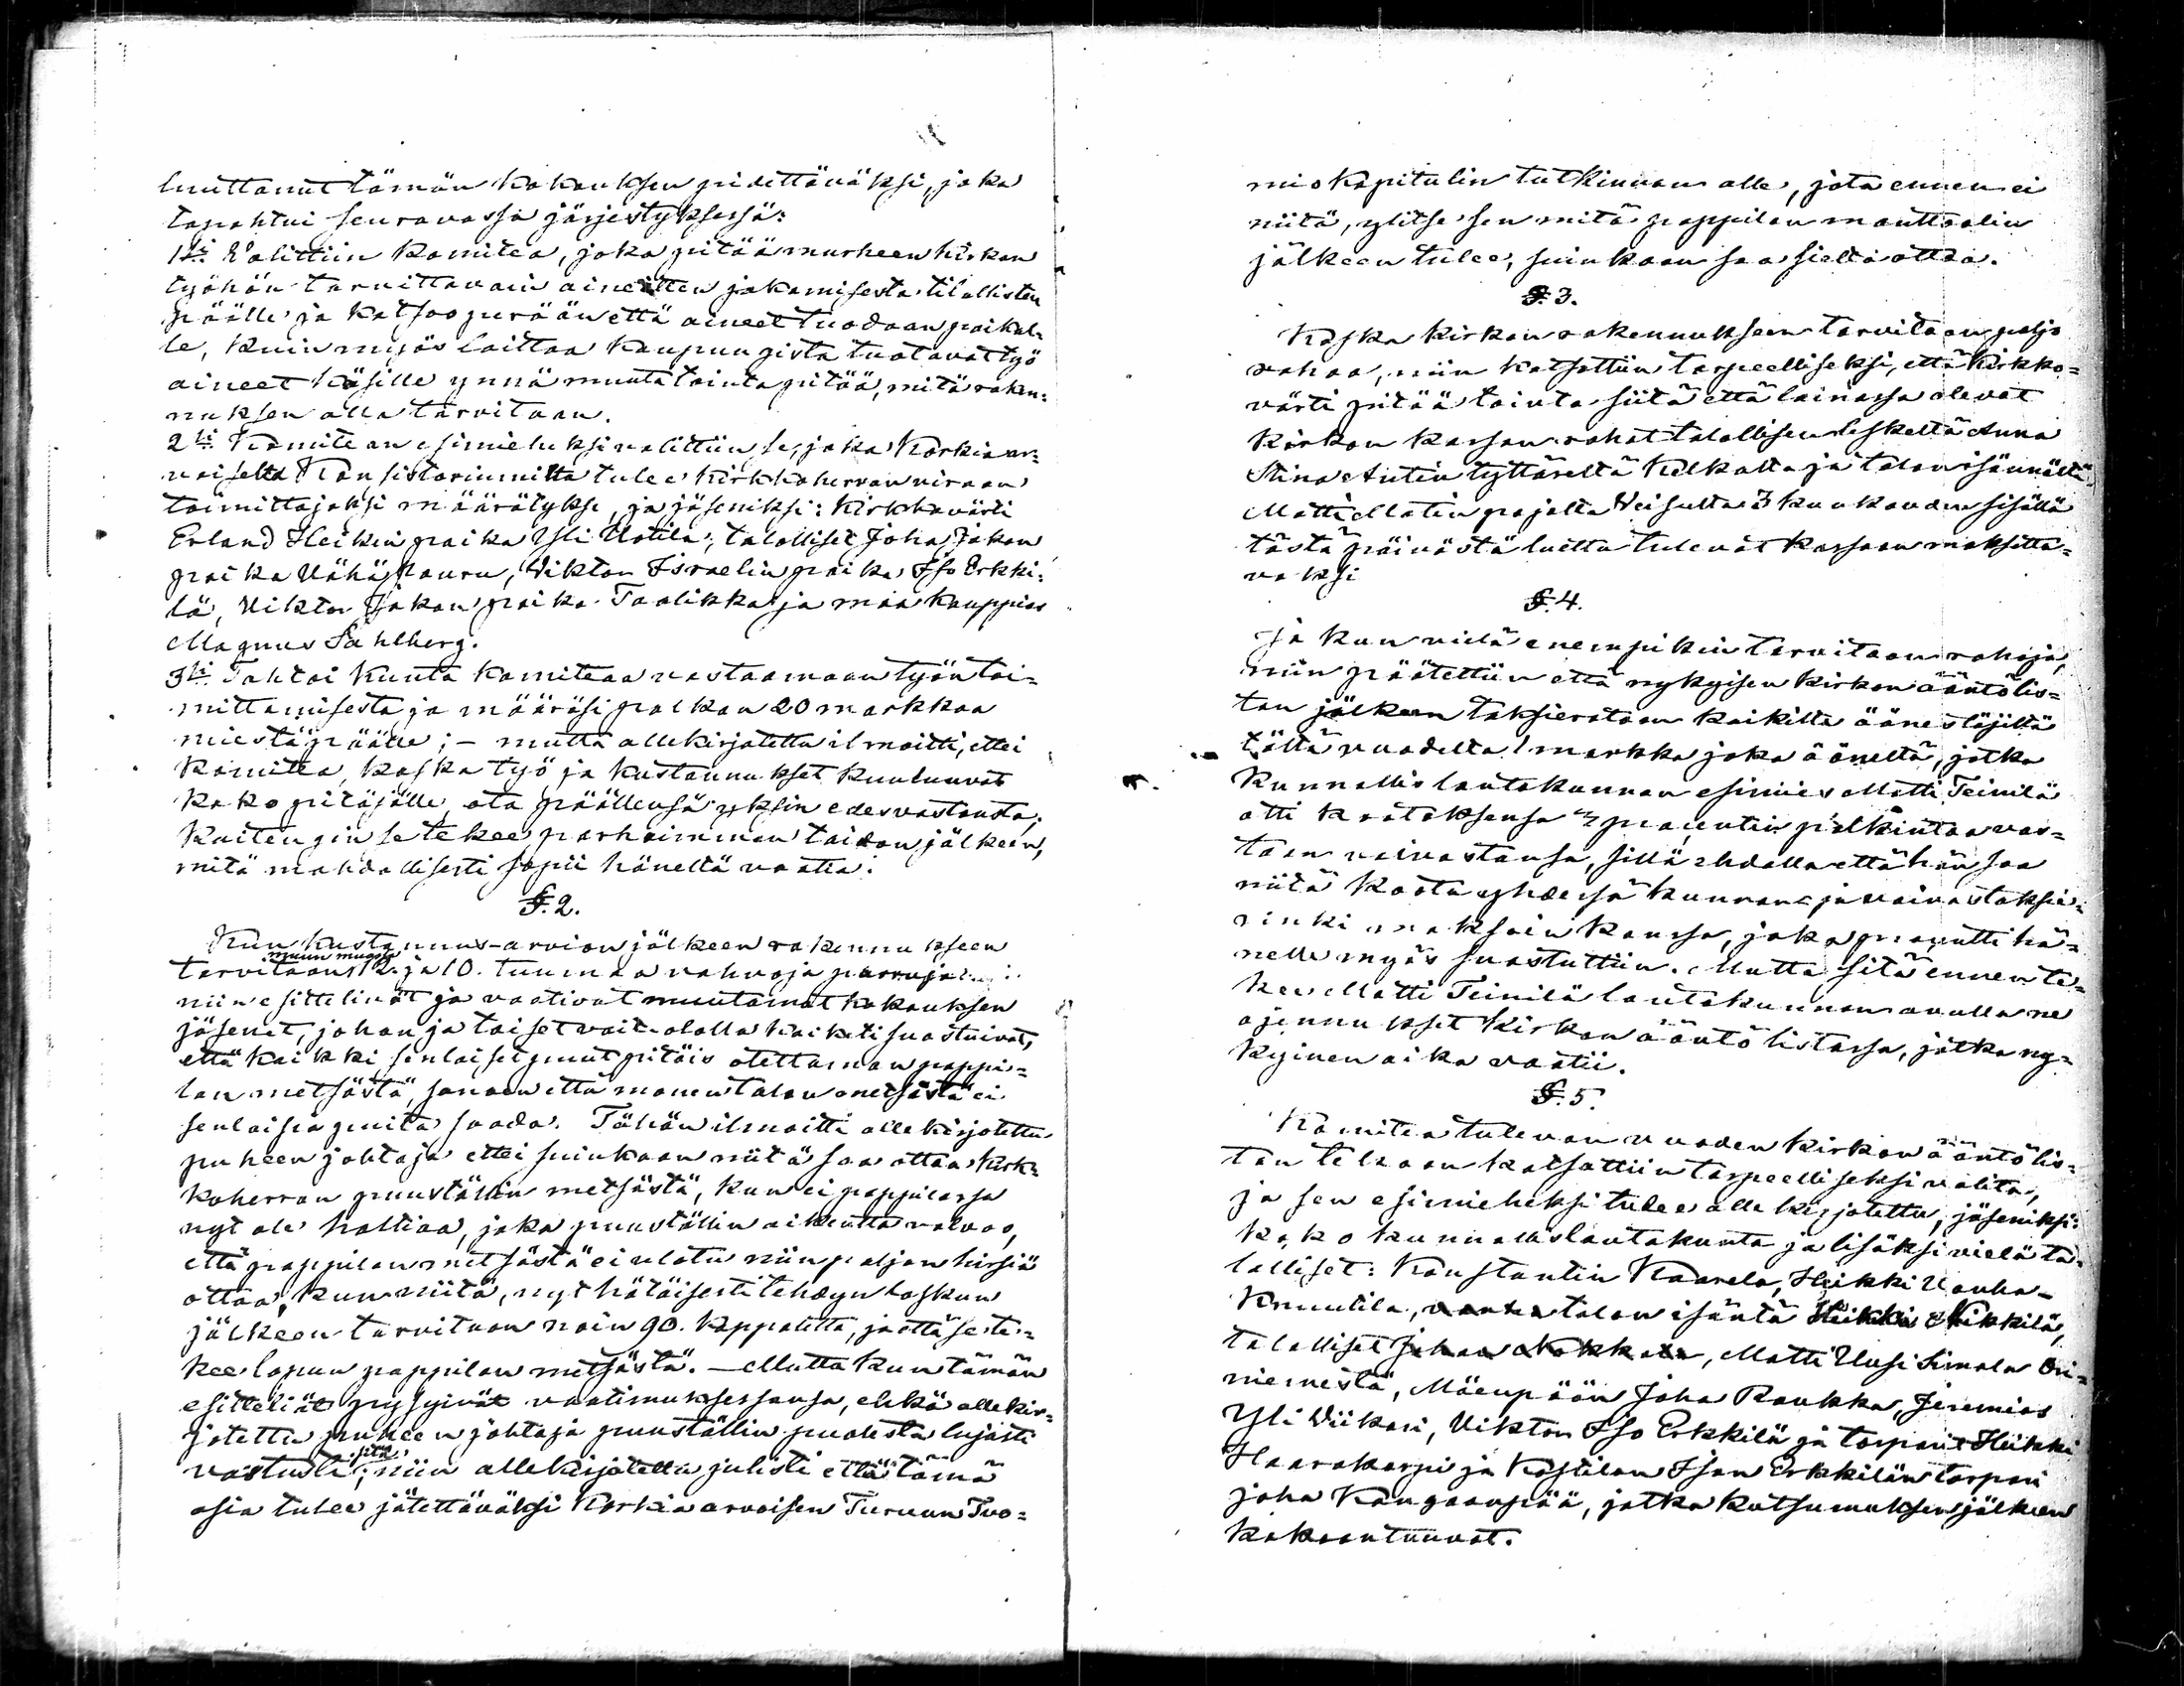 luuttanut tämän kokouksen pidettäväksi, joka
tapahtui seuravassa järjestyksessä:
1ksi Valittiin Komitea, joka pitää murheen kirkon
työhön tarvittavain aineitten jakamisesta tilallisten
päälle ja katsoo perään että aineet tuodaan paikal-
le, kuin myös laittaa kaupungista tuotavat työ
aineet käsille ynnä muuta tointa pitää, mitä raken=
nuksen alla tarvitaan.
2ksi Komitean esimieheksi valittiin se, joka Korkiaar=
voiselta Konsistoriumilta tulee kirkkoherran viraan
toimittajaksi määrätyksi, ja jäseniksi: Kirkkovärti
Erland Heikin poika Yli Uotila, talolliset Joha Jakon
poika Vähä Kauru, Viktor Israelin poika Iso Erkki=
lä, Viktor Jakon poika Taalikka ja maa kauppias
Magnus Dahlberg.
3ksi Tahtoi kunta Komiteaa vastaamaan työn toi=
mittamisesta ja määräsi palkan 20 markkaa
miestä päälle; – mutta allekirjotettu ilmoitti, ettei
Komitea, koska työ ja kustannukset kuuluuvat
koko pitäjälle, ota päällensä yksin edesvastausta,
kuitengin se tekee parhaimman taidon jälkeen,
mitä mahdollisesti sopii häneltä vaatia.
§. 2.
Kun kustannus-arvion jälkeen rakennukseen
muun muassa
tarvitaan 12. ja 10. tuumaa vahvoja parruja
niin esittelivät ja vaativat muutamat kokouksen
jäsenet, johon ja toiset vait-ololla kaikiti suostuivat,
että kaikki senlaiset puut pitäis otettaman pappi=
lan metsästä, sanoen että monen talon metsästä ei
senlaisia puita saada. Tähän ilmoitti allekirjotettu
puheen johtaja ettei suinkaan niitä saa ottaa Kirk=
koherran puuställin metsästä, kun ei pappilassa
nyt ole haltiaa, joka puuställin oikeutta valvoo,
että pappilan metsästä ei ulotu niin paljon hirsiä
ottaa, kun niitä, nyt hätäisesti tehdyn laskun
jälkeen tarvitaan noin 90. kappaletta, ja että se te=
kee lopun pappilan metsästä. – Mutta kun tämän
esitteliät pysyivät vaatimuksessansa, ehkä allekir=
jotettu puheen johtaja puuställin puolesta lujasti
sitä
vastusti, niin allekirjotettu julisti että tämä
asia tulee jätettäväksi Korkia arvoisen Turuun Tuo=
miokapitulin tutkinnon alle, jota ennen ei
niitä, ylitse sen mitä pappilan manttaalin
jälkeen tulee, suinkaan saa sieltä ottaa.
§. 3.
Koska kirkon rakennukseen tarvitaan paljo
rahaa, niin katsottiin tarpeelliseksi, että Kirkko=
värti pitää tointa siitä että lainassa olevat
Kirkon kassan rahat talollisen leskeltä Anna
Stina Antin tyttäreltä Kelkalta ja talon isännältä
Matti Matin pojalta Veisulta 3 kuukauden sisällä
tästä päivästä luettu tulevat kassaan maksetta=
vaksi
§. 4.
Ja kun vielä enempikin tarvitaan rahoja,
niin päätettiin että nykyisen kirkon ääntölis=
tan jälkeen taksierataan kaikilta äänestäjiltä
tältä vuodelta 1 markka joka ääneltä, jotka
Kunnallislautakunnan esimies Matti Teinilä
otti kootaksensa procentin palkintoa vas=
taan vaivastansa, sillä ehdolla että hän saa
niitä koota yhdessä kunnan ja vaivastaksie=
rinki maksoin kanssa, joka procentti hä=
nelle myös suostuttiin. Mutta sitä ennen te=
kee Matti Teinilä lautakunnan avulla ne
ojennukset kirkon ääntölistassa, jotka ny=
kyinen aika vaatii.
§. 5.
Komitea tulevan vuoden kirkon ääntölis=
tan tekoon katsottiin tarpeelliseksi valita,
ja sen esimieheksi tulee allekirjotettu, jäseniksi:
koko kunnallislautakunta ja lisäksi vielä ta=
lolliset: Konstantin Kaarela, Heikki Vanha-
Knuutila, talon isäntä Heikki Nikkilä,
talolliset Johan Nokkala, Matti Uusi Simola Ori=
niemestä, Mäenpään Joha Raukka, Jeremias
Yli Wiikari, Viktor Iso Erkkilä ja torpari Heikki
Haarakorpi ja Kostilan Ison Erkkilän torpari
Joha Kangaanpää, jotka kutsumuksen jälkeen
kokoontuuvat.